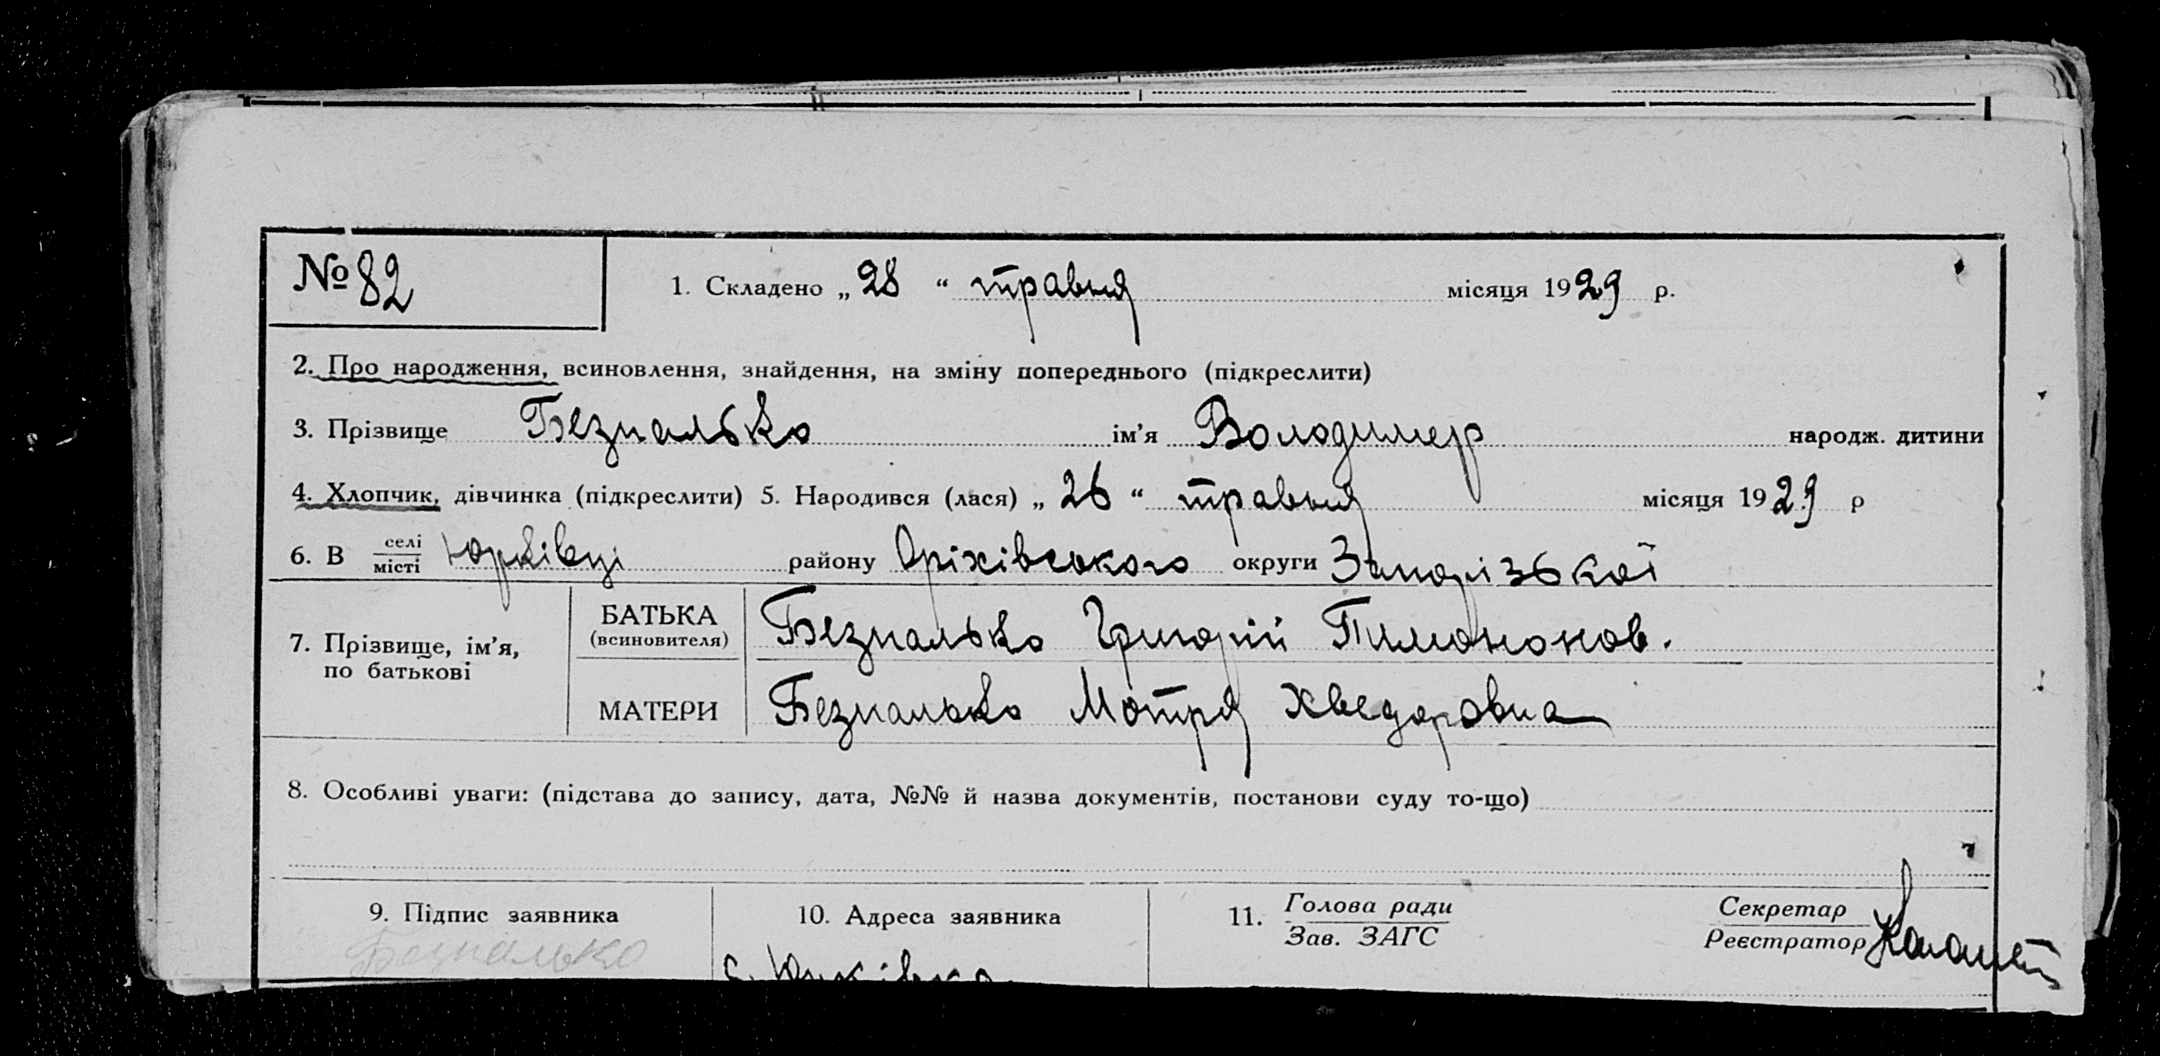 № 82
1. Складено „ 28 “ травня місяця 1929 р.
2. Про народження, всиновлення, знайдення, на зміну попереднього (підкреслити)
3. Прізвище Безпалько ім’я Володимер народж. дитини
4. Хлопчик, дівчинка (підкреслити) 5. Народився (лася) „ 26 “ травня місяця 1929 р
6. В селі/місті Юрківці району Оріхівського округи Запорізької
7. Прізвище, ім’я, по батькові
БАТЬКА (всиновителя) Безпалько Григорій Тимононов.
МАТЕРИ Безпалько Мотря Хведоровна
8. Особливі уваги: (підстава до запису, дата, №№ й назва документів, постанови суду то-що)
9. Підпис заявника
Безпалько
10. Адреса заявника
с. Юрківка
11. Голова ради
Зав. ЗАГС
Секретар
Реєстратор